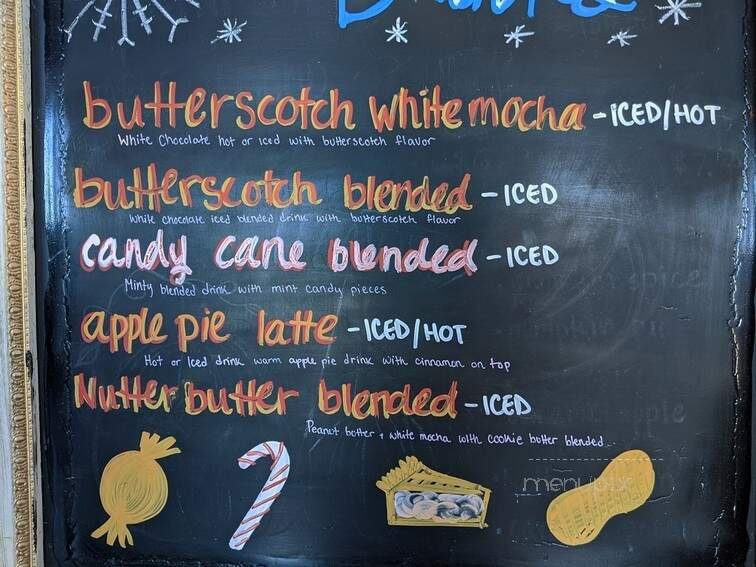 butterscotch white mocha - ICED/HOT
White Chocolate hot or iced with butterscotch flavor
butterscotch blended - ICED
White chocolate iced blended drink with butterscotch flavor
candy cane blended - ICED
Minty blended drink with mint candy pieces
apple pie latte - ICED/HOT
Hot or Iced drink warm apple pie drink with cinnamon on top
Nutter butter blended - ICED
Peanut botter + white mocha with cookie butter blended
menupix